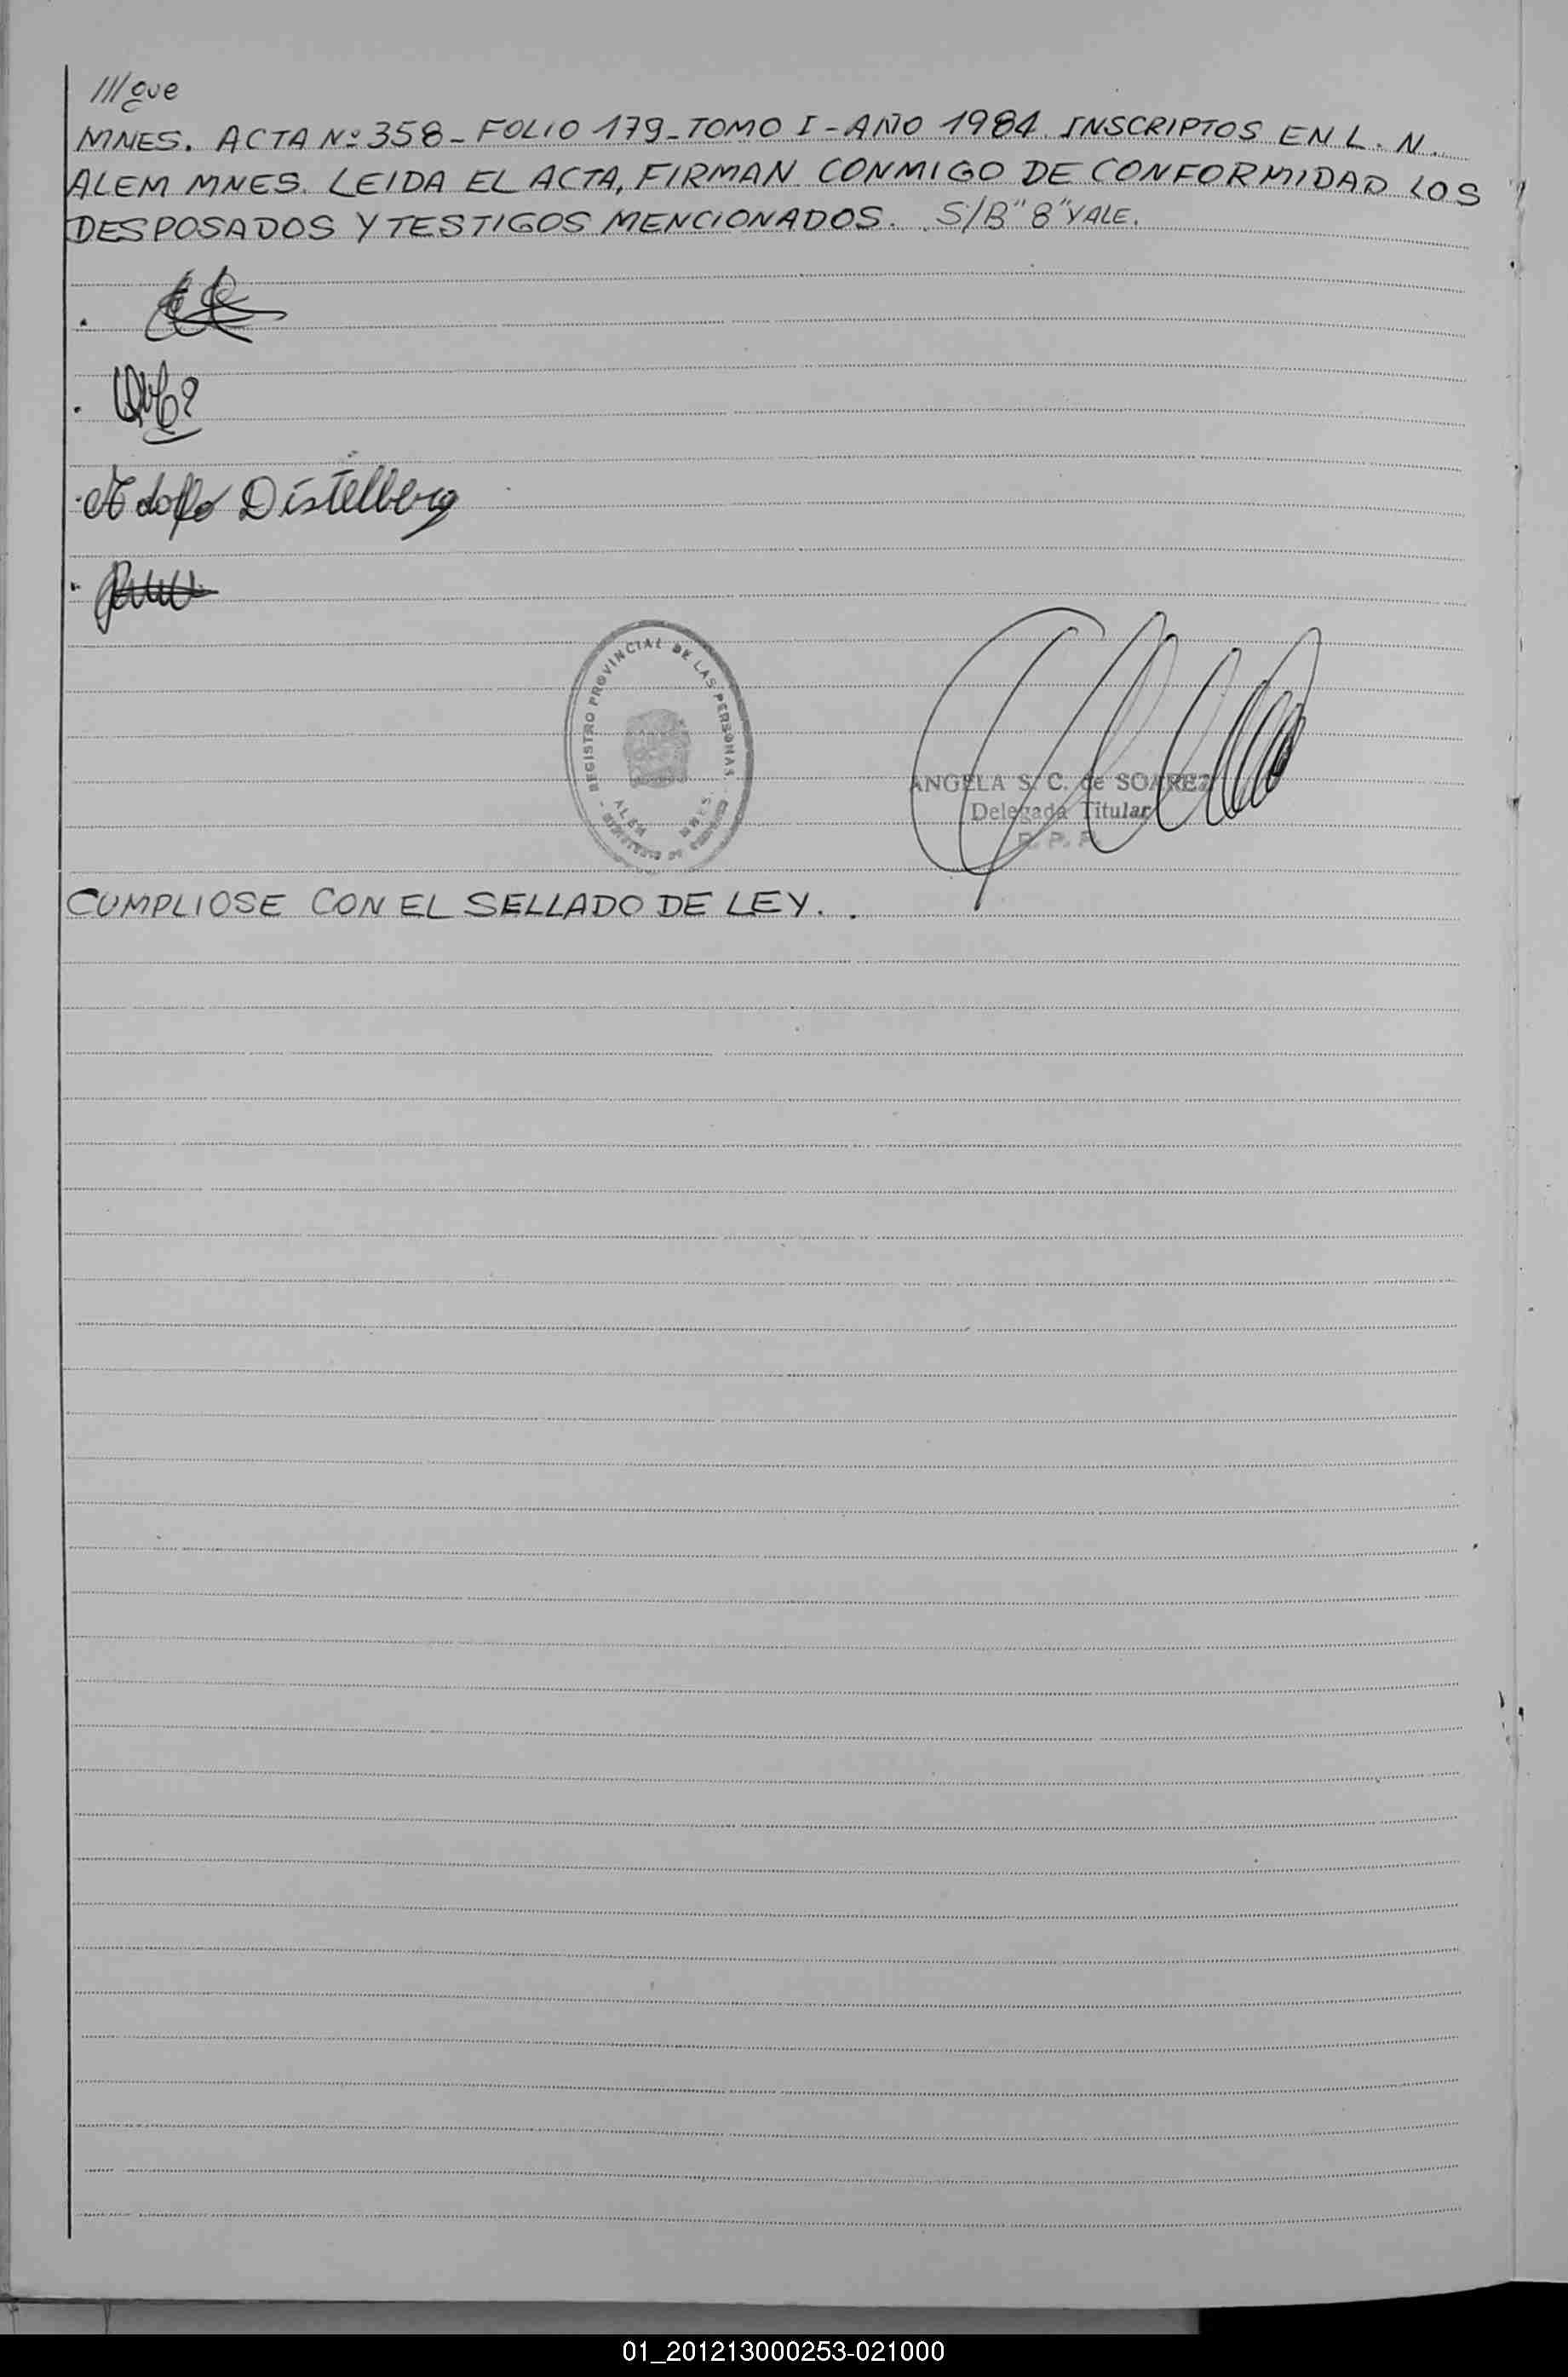 /// que
MNES. ACTA Nº 358 - FOLIO 179 - TOMO I - AÑO 1984. INSCRIPTOS EN L. N.
ALEM MNES. LEIDA EL ACTA, FIRMAN CONMIGO DE CONFORMIDAD LOS
DESPOSADOS Y TESTIGOS MENCIONADOS. S/B "8" VALE.
Adolfo Distelberg
REGISTRO PROVINCIAL DE LAS PERSONAS
ALEM MNES.
ANGELA S. C. de SOAREZ
Delegada Titular
R. P. P.
CUMPLIOSE CON EL SELLADO DE LEY. .
01_201213000253-021000